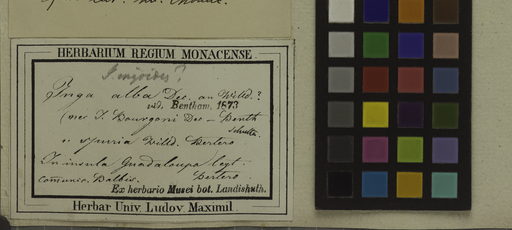 HERBARIUM REGIUM MONACENSE
I. ingoides?
Inga alba Dec. an Willd.?
vid. Bentham. 1873
(nec I. Bourgoni Dec — Benth
Schultes
spuria Willd. Bertero
In insula Guadaloupa legt.
comunic. Balbis. Bertero
Ex herbario Musei bot. Landishuth.
Herbar Univ. Ludov. Maximil.